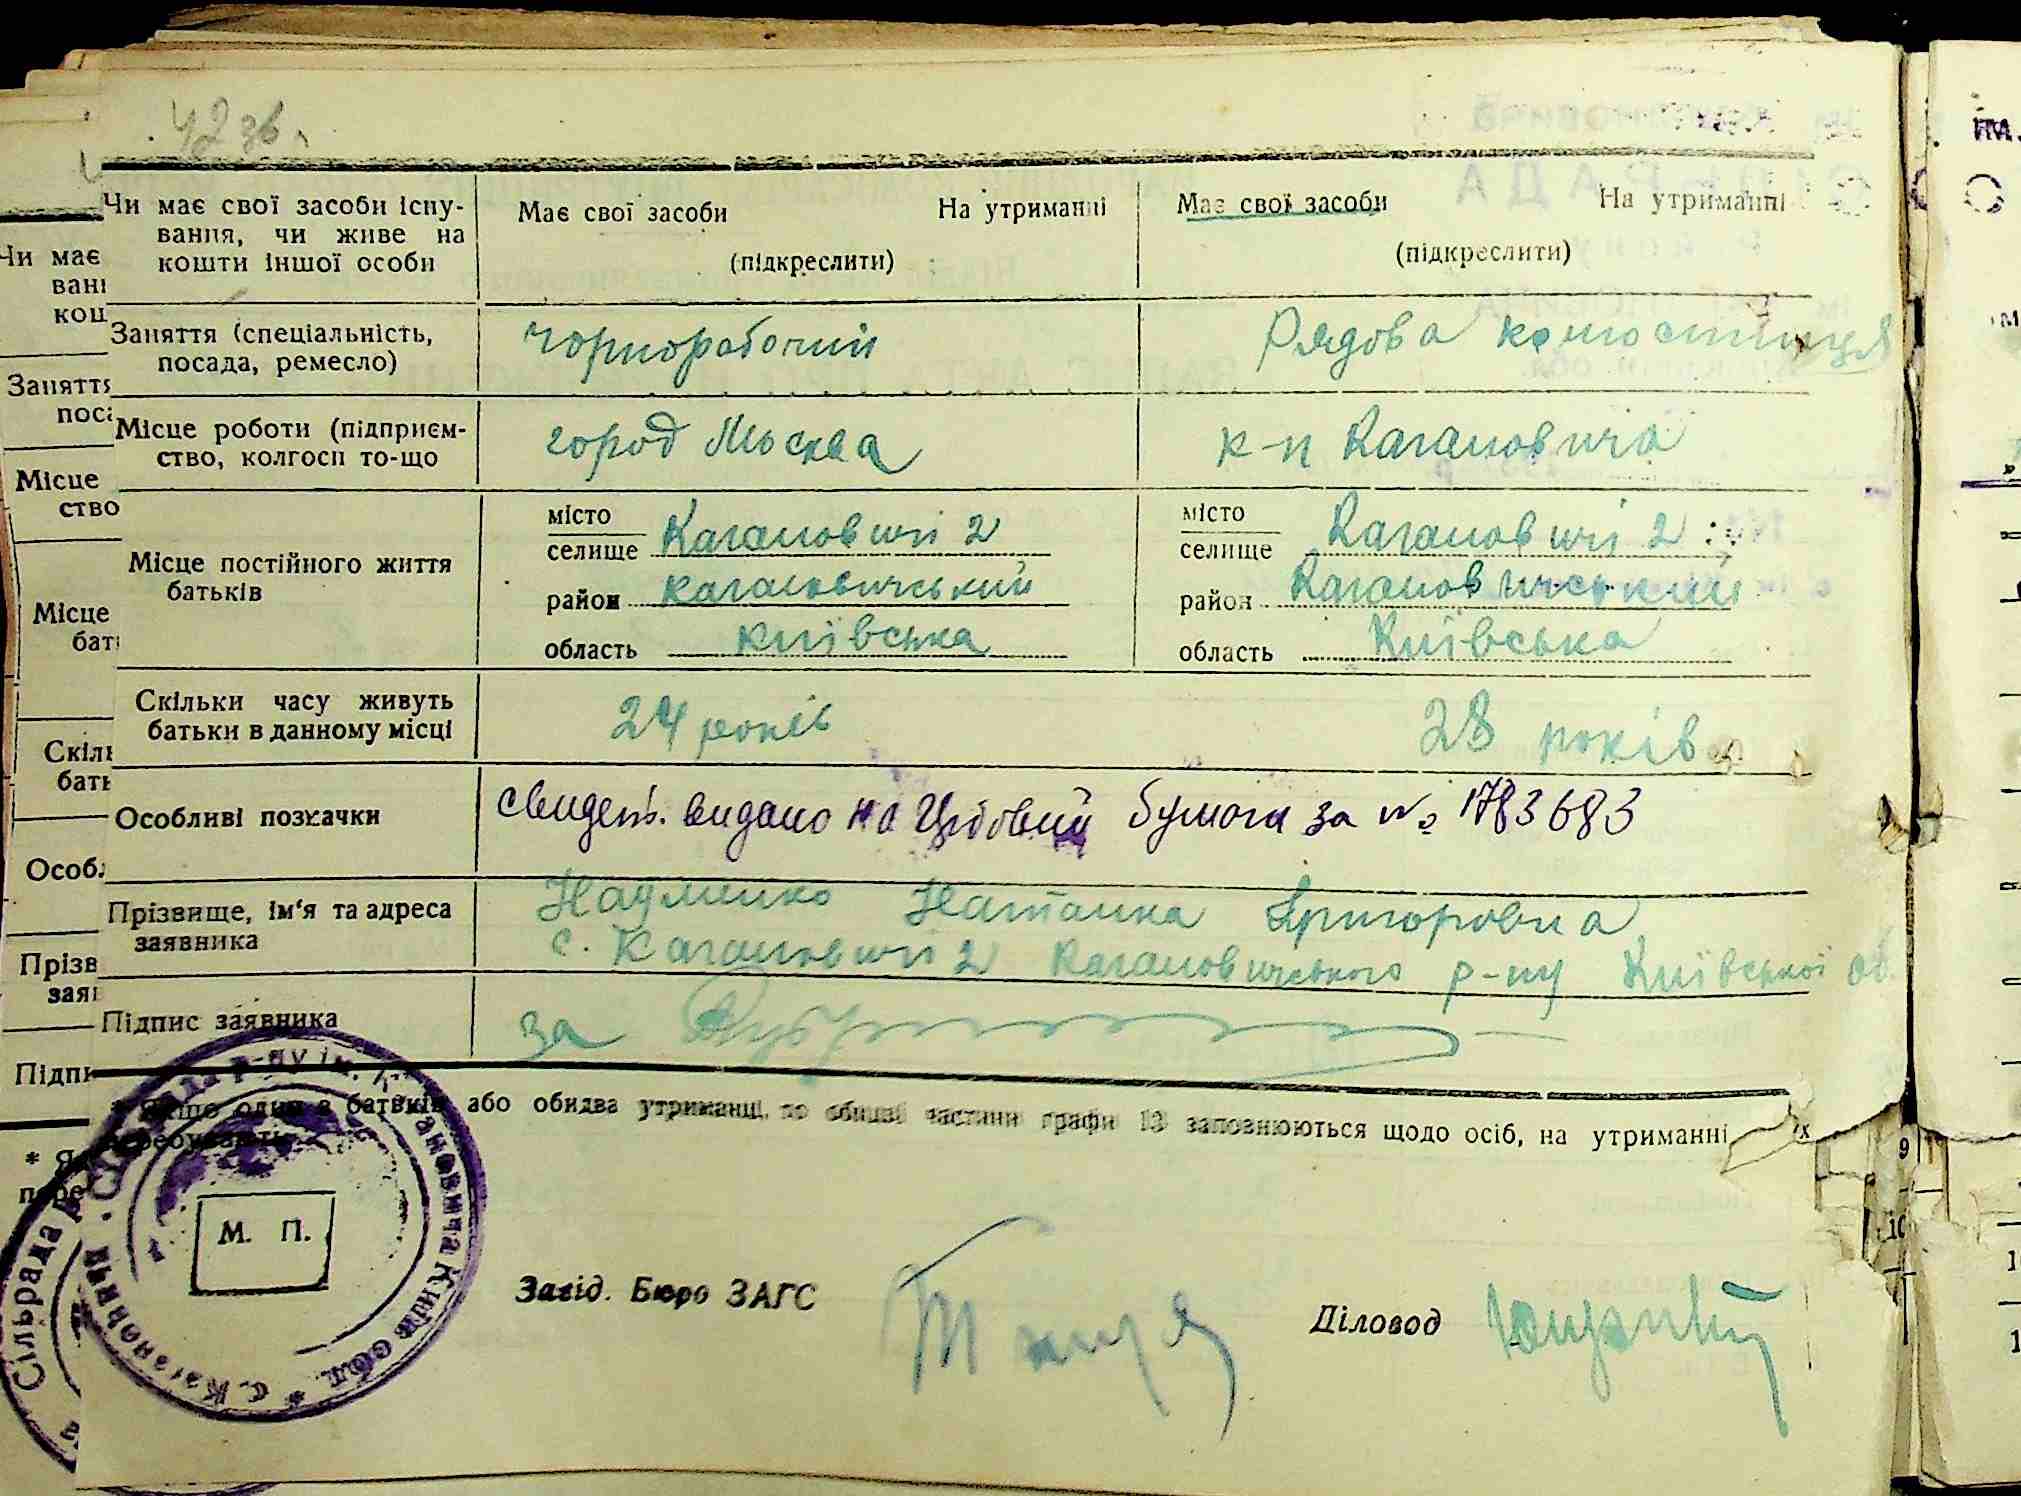 42 зв.
Чи має свої засоби існу-
вання, чи живе на
кошти іншої особи
Має свої засоби На утриманні
(підкреслити)
Має свої засоби На утриманні
(підкреслити)
Заняття (спеціальність,
посада, ремесло)
чорноробочий
Рядова
Місце роботи (підприєм-
ство, колгосп то-що
город Москва
к-п Кагановича
Місце постійного життя
батьків
місто
селище Кагановичі 2
район кагановичський
область київська
місто
селище Кагановичі 2
район Кагановичський
область Київська
Скільки часу живуть
батьки в данному місці
24 років
28 років
Особливі позначки
свидет. видано на бумоги за № 1783683
Прізвище, ім'я та адреса
заявника
Науменко Григоровна
с. Кагановичі 2 Кагановичського р-ну Київської об
Підпис заявника
за
* Якщо один з батьків або обидва утриманці, то обидві частини графи 13 заповнюються щодо осіб, на утриманні
М. П.
Завід. Бюро ЗАГС
Діловод